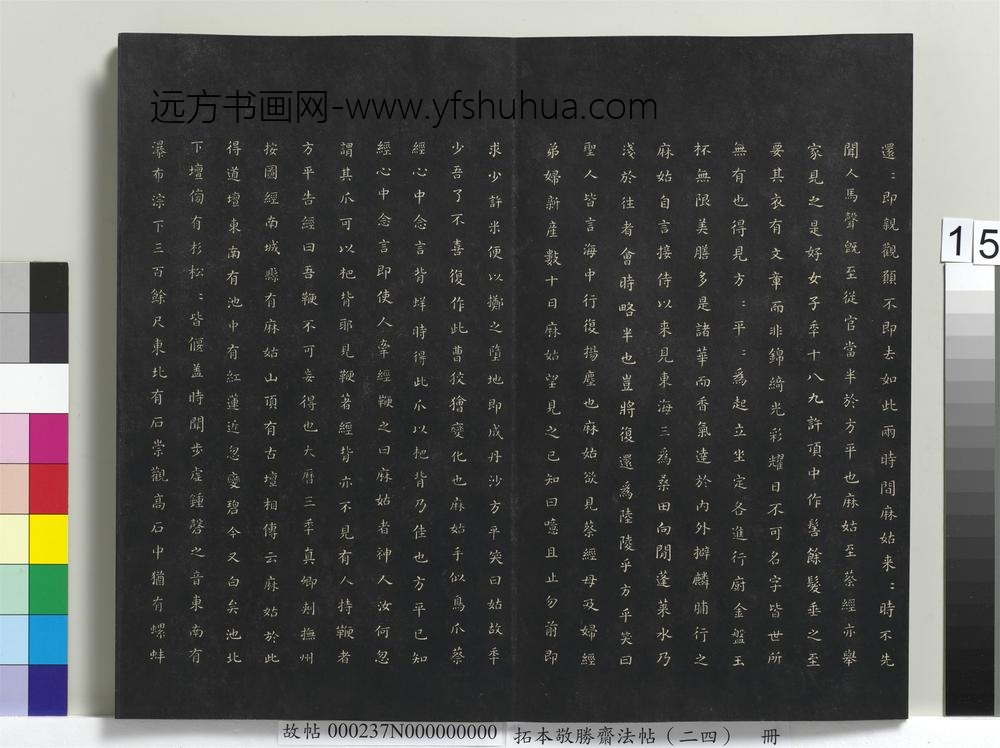 远方书画网-www.yfshuhua.com
還：即親觀願不即去如此兩時間麻姑来：時不先
聞人馬聲旣至從官當半於方平也麻姑至蔡經亦舉
家見之是好女子年十八九許頂中作髻餘髮垂之至
要其衣有文章而非錦綺光彩耀日不可名字皆世所
無有也得見方：平：爲起立坐定各進行廚金盤玉
杯無限美膳多是諸華而香氣達於內外擗麟脯行之
麻姑自言接侍以来見東海三爲桑田向間蓬萊水乃
淺於往者會時略半也豈將復還爲陸陵乎方平笑曰
聖人皆言海中行復揚塵也麻姑欲見蔡經母及婦經
弟婦新產數十日麻姑望見之已知曰噫且止勿前即
求少許米便以擲之墮地即成丹沙方平笑曰姑故年
少吾了不喜復作此曹狡獪變化也麻姑手似鳥爪蔡
經心中念言背痒時得此爪以杷背乃佳也方平已知
經心中念言即使人牽經鞭之曰麻姑者神人汝何忽
謂其爪可以杷背耶見鞭著經背亦不見有人持鞭者
方平告經曰吾鞭不可妄得也大曆三年真卿刺撫州
按圖經南城縣有麻姑山頂有古壇相傳云麻姑於此
得道壇東南有池中有紅蓮近忽變碧今又白矣池北
下壇傍有杉松：皆偃盖時聞步虛鍾磬之音東南有
瀑布淙下三百餘尺東北有石崇觀高石中猶有螺蚌
15
故帖 000237N000000000
拓本敬勝齋法帖（二四） 冊